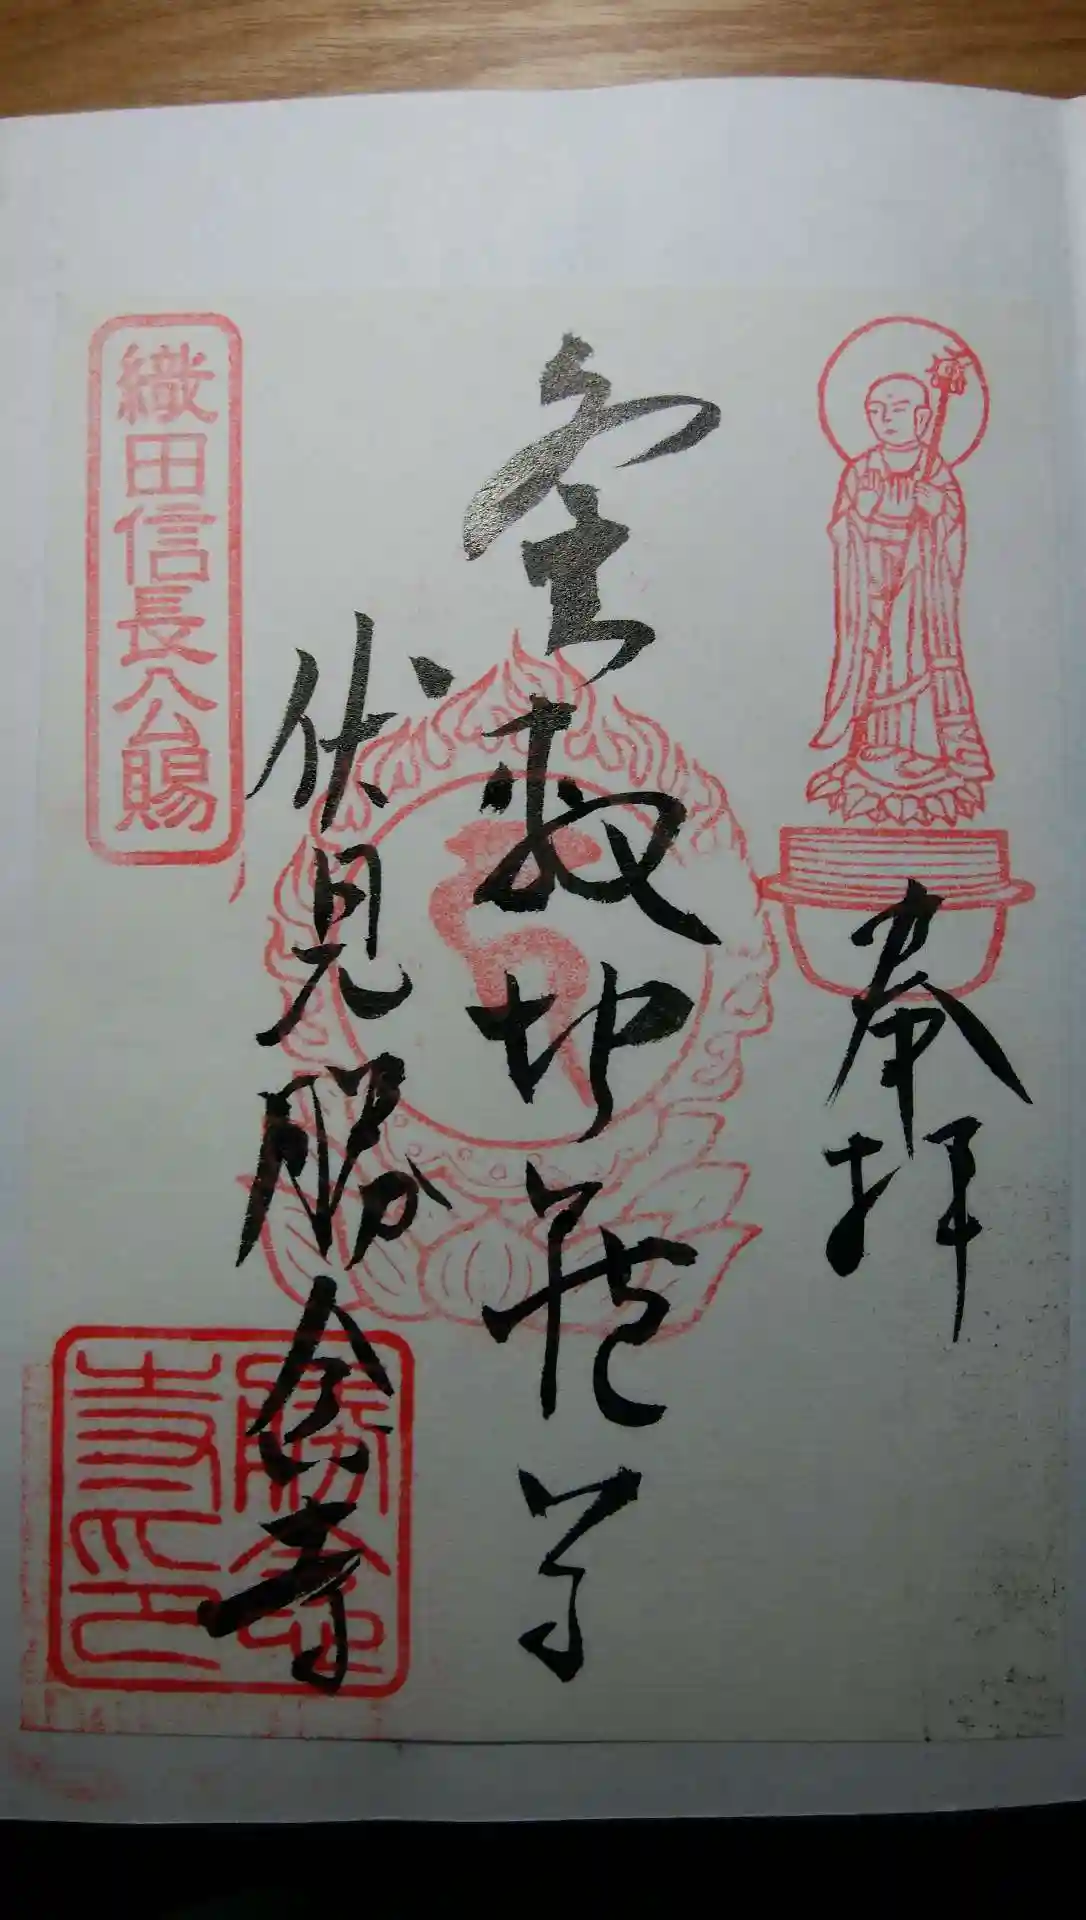 奉拝
釜敷地蔵尊
伏見勝念寺
織田信長公賜
勝念
寺印